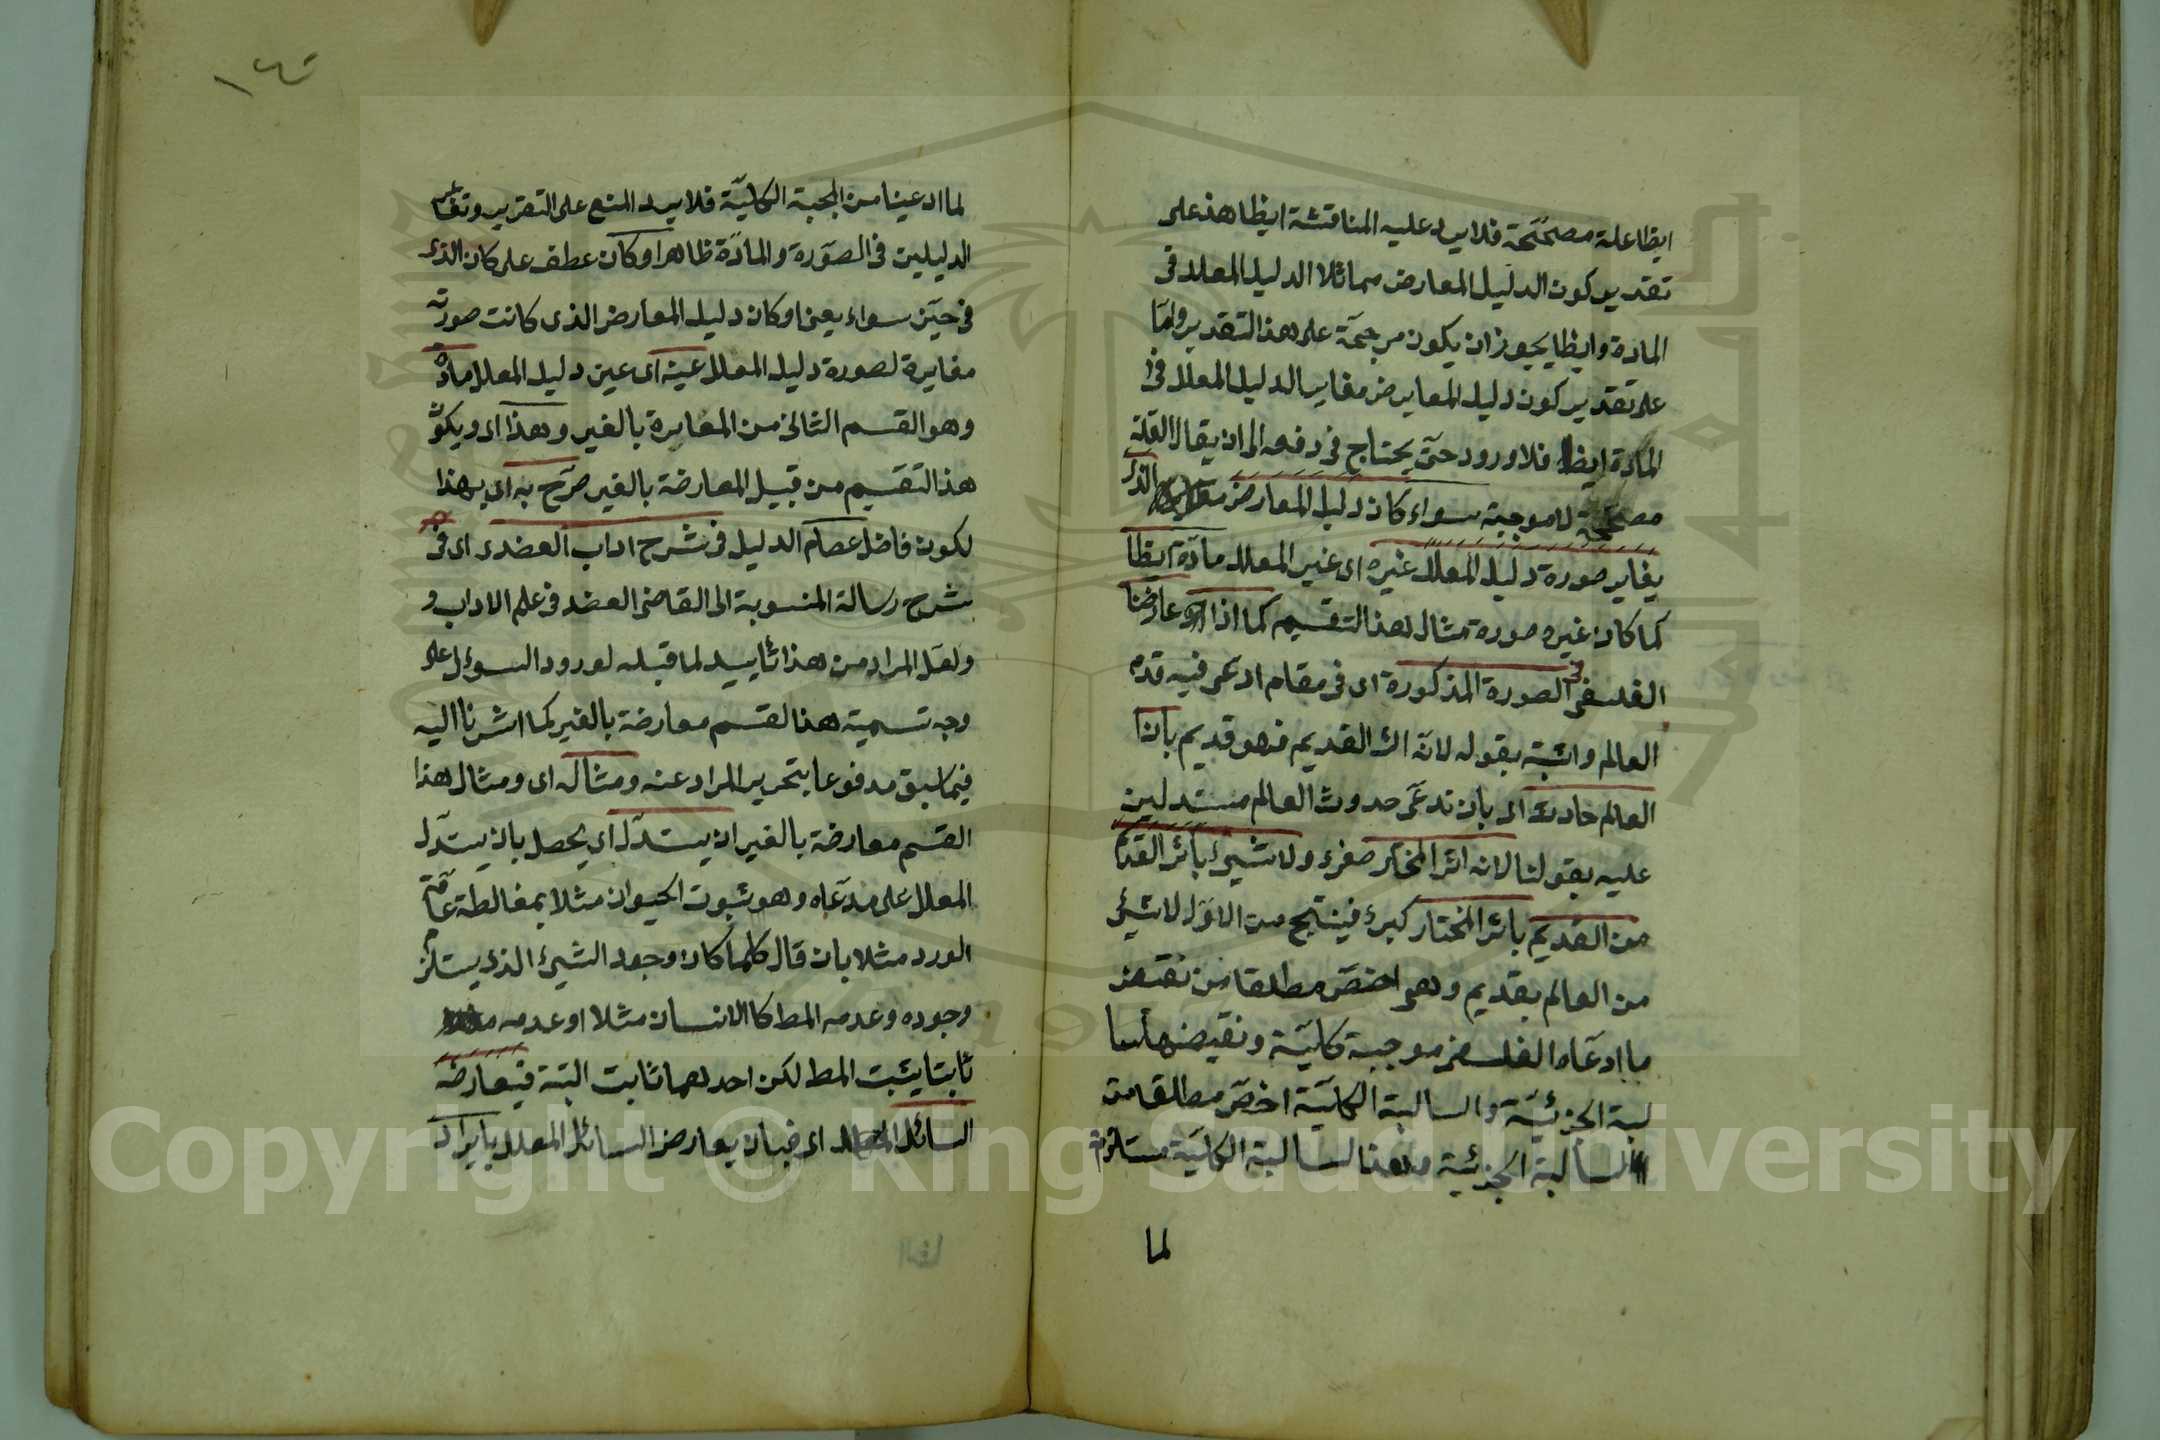 ايظا علة مصححة فلا يرد عليه المناقشة ايظا هذ على
تقدير كون الدليل المعارض مماثلا الدليل المعلل فى
المادة وايظا يجوز ان يكون مرجحة على هذ التقدير واما
على تقدير كون دليل المعارض مغاير الدليل المعلل فى
المادة ايظا فلا ورود حتى يحتاج فى دفعه الى ان يقال العلة
مصححة لا موجبة سواء كان دليل المعارض الذى
يغاير صورة دليل المعلل غيره اى غير المعلل مادة ايظا
كما كان غيره صورة مثال لهذ التقسيم كما اذا عارضنا
الفلسفى فى الصورة المذكورة اى فى مقام ادعى فيه قدم
العالم واثبته بقوله لانه اثر القديم فهو قديم بان
العالم حادث اى بان ندعى حدوث العالم مستدلين
عليه بقولنا لانه اثر المختار صغرى ولا شيئ باثر القديم
من القديم باثر المختار كبرى فينتج من الاول لا شيئ
من العالم بقديم وهو اخص مطلقا من نقيض
ما ادعاه الفلسفى موجبة كلية ونقيضها سا
لبة الجزئية والسالبة الكلية اخص مطلقا من
السالبة الجزئية وهذ السالبة الكلية مستلزم
لما
١٤٢
لما ادعينا من الجبة الكلية فلا يرد المنع على التقريب وتغاير
الدليلين فى الصورة والمادة ظاهر او كان عطف على كان الذى
فى حيز سواء يعنى او كان دليل المعارض الذى كانت صورته
مغايرة لصورة دليل المعلل عينه اى عين دليل المعلل مادة
وهو القسم الثانى من المعارضة بالغير وهذا اى ويكون
هذ التقسيم من قبيل المعارضة بالغير صرح به اى بهذا
لكون فاضل عصام الدليل فى شرح اداب العضدى اى فى
شرح رسالة المنسوبة الى القاضى العضد فى علم الاداب و
ولعل المراد من هذا تأييد لما قبله لورود السوءل على
وجه تسمية هذ القسم معارضة بالغير كما اشرنا اليه
فيما سبق مدفوعا بتحرير المراد عنه ومثاله اى ومثال هذا
القسم معارضة بالغير ان يستدل اى يحصل بان يستدل
المعلل على مدعاه وهو ثبوت الحيوان مثلا بمغالطة عامة
الورد مثلا بان قال كلما كان وجود الشيئ الذى يستلزم
وجوده وعدمه المط كالانسان مثلا او عدمه
ثابتا يثبت المط لكن احدهما ثابت البتة فيعارضه
السائل المعلل اى فبان يعارض السائل المعلل بايراد
Copyright © King Saud University